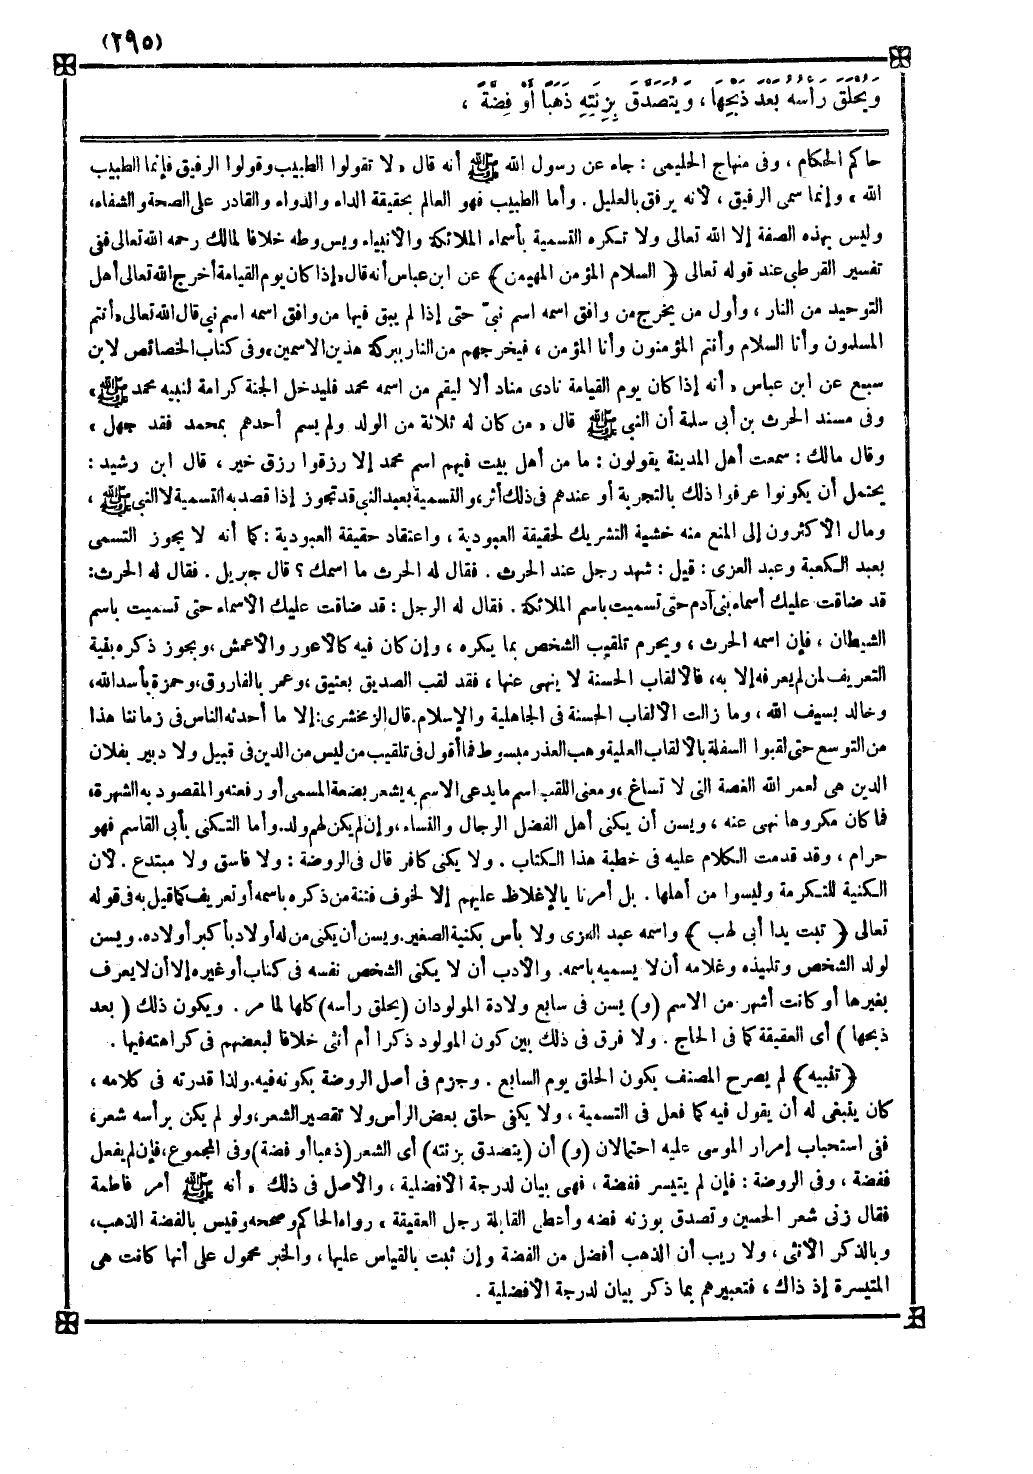 (٢٩٥)
وَيُحْلَقَ رَأْسُهُ بَعْدَ ذَبْحِهَا، وَيُتَصَدَّقَ بِزِنَتِهِ ذَهَبًا أَوْ فِضَّةً ،
حاكم الحكام ، وفى منهاج الحليمى : جاء عن رسول الله ﷺ أنه قال « لا تقولوا الطبيب وقولوا الرفيق فإنما الطبيب
الله » وإنما سمى الرفيق ، لأنه يرفق بالعليل . وأما الطبيب فهو العالم بحقيقة الداء والدواء والقادر على الصحة والشفاء،
وليس بهذه الصفة إلا الله تعالى ولا تكره التسمية بأسماء الملائكة والأنبياء ويس وطه خلافا لمالك رحمه الله تعالى ففى
تفسير القرطبى عند قوله تعالى ( السلام المؤمن المهيمن ) عن ابن عباس أنه قال « إذا كان يوم القيامة أخرج الله تعالى أهل
التوحيد من النار ، وأول من يخرج من وافق اسمه اسم نبىّ حتى إذا لم يبق فيها من وافق اسمه اسم نبى قال الله تعالى « أنتم
المسلمون وأنا السلام وأنتم المؤمنون وأنا المؤمن ، فيخرجهم من النار ببركة هذين الاسمين » وفى كتاب الخصائص لابن
سبع عن ابن عباس « أنه إذا كان يوم القيامة نادى مناد ألا ليقم من اسمه محمد فليدخل الجنة كرامة لنبيه محمد ﷺ »
وفى مسند الحرث بن أبى سلمة أن النبى ﷺ قال « من كان له ثلاثة من الولد ولم يسم أحدهم بمحمد فقد جهل »
وقال مالك : سمعت أهل المدينة يقولون : ما من أهل بيت فيهم اسم محمد إلا رزقوا رزق خير ، قال ابن رشيد :
يحتمل أن يكونوا عرفوا ذلك بالتجربة أو عندهم فى ذلك أثر، والتسمية بعبد النبى قد تجوز إذا قصد به التسمية لا النبى ﷺ ،
ومال الأكثرون إلى المنع منه خشية التشريك لحقيقة العبودية ، واعتقاد حقيقة العبودية : كما أنه لا يجوز التسمى
بعبد الكعبة وعبد العزى : قيل : شهد رجل عند الحرث . فقال له الحرث ما اسمك ؟ قال جبريل . فقال له الحرث:
قد ضاقت عليك أسماء بنى آدم حتى تسميت باسم الملائكة . فقال له الرجل : قد ضاقت عليك الأسماء حتى تسميت باسم
الشيطان ، فإن اسمه الحرث ، ويحرم تلقيب الشخص بما يكره ، وإن كان فيه كالأعور والأعمش ، ويجوز ذكره بقية
التعريف لمن لم يعرفه إلا به، فالألقاب الحسنة لا ينهى عنها ، فقد لقب الصديق بعتيق ، وعمر بالفاروق، وحمزة بأسد الله،
وخالد بسيف الله ، وما زالت الألقاب الحسنة فى الجاهلية والإسلام. قال الزمخشرى: إلا ما أحدثه الناس فى زماننا هذا
من التوسع حتى لقبوا السفلة بالألقاب العلية وهب العذر مبسوط فما أقول فى تلقيب من ليس من الدين فى قبيل ولا دبير بفلان
الدين هى لعمر الله الغصة التى لا تساغ ، ومعنى اللقب اسم ما يدعى الاسم به يشعر بضعة المسمى أو رفعته والمقصود به الشهرة،
فما كان مكروها نهى عنه ، ويسن أن يكنى أهل الفضل الرجال والنساء، وإن لم يكن لهم ولد. وأما التكنى بأبى القاسم فهو
حرام ، وقد قدمت الكلام عليه فى خطبة هذا الكتاب . ولا يكنى كافر قال فى الروضة : ولا فاسق ولا مبتدع . لأن
الكنية للتكرمة وليسوا من أهلها . بل أمرنا بالإغلاظ عليهم إلا لخوف فتنة من ذكره باسمه أو تعريف كما قيل به فى قوله
تعالى ( تبت يدا أبى لهب ) واسمه عبد العزى ولا بأس بكنية الصغير. ويسن أن يكنى من له أولاد بأكبر أولاده. ويسن
لولد الشخص وتلميذه وغلامه أن لا يسميه باسمه. والأدب أن لا يكنى الشخص نفسه فى كتاب أو غيره إلا أن لا يعرف
بغيرها أو كانت أشهر من الاسم (و) يسن فى سابع ولادة المولود أن (يحلق رأسه) كلها لما مر . ويكون ذلك ( بعد
ذبحها ) أى العقيقة كما فى الحاج . ولا فرق فى ذلك بين كون المولود ذكرا أم أنثى خلافا لبعضهم فى كراهته فيها .
( تنبيه ) لم يصرح المصنف بكون الحلق يوم السابع . وجزم فى أصل الروضة بكونه فيه. ولذا قدرته فى كلامه ،
كان ينبغى له أن يقول فيه كما فعل فى التسمية ، ولا يكفى حلق بعض الرأس ولا تقصير الشعر، ولو لم يكن برأسه شعر،
ففى استحباب إمرار الموسى عليه احتمالان (و) أن (يتصدق بزنته) أى الشعر (ذهبا أو فضة) وفى المجموع، فإن لم يفعل
ففضة ، وفى الروضة : فإن لم يتيسر ففضة ، فهى بيان لدرجة الأفضلية ، والأصل فى ذلك « أنه ﷺ أمر فاطمة
فقال زنى شعر الحسين وتصدق بوزنه فضه وأعطى القابلة رجل العقيقة » رواه الحاكم وصححه وقيس بالفضة الذهب،
وبالذكر الأنثى ، ولا ريب أن الذهب أفضل من الفضة وإن ثبت بالقياس عليها ، والخبر محمول على أنها كانت هى
المتيسرة إذ ذاك ، فتعبيرهم بما ذكر بيان لدرجة الأفضلية .